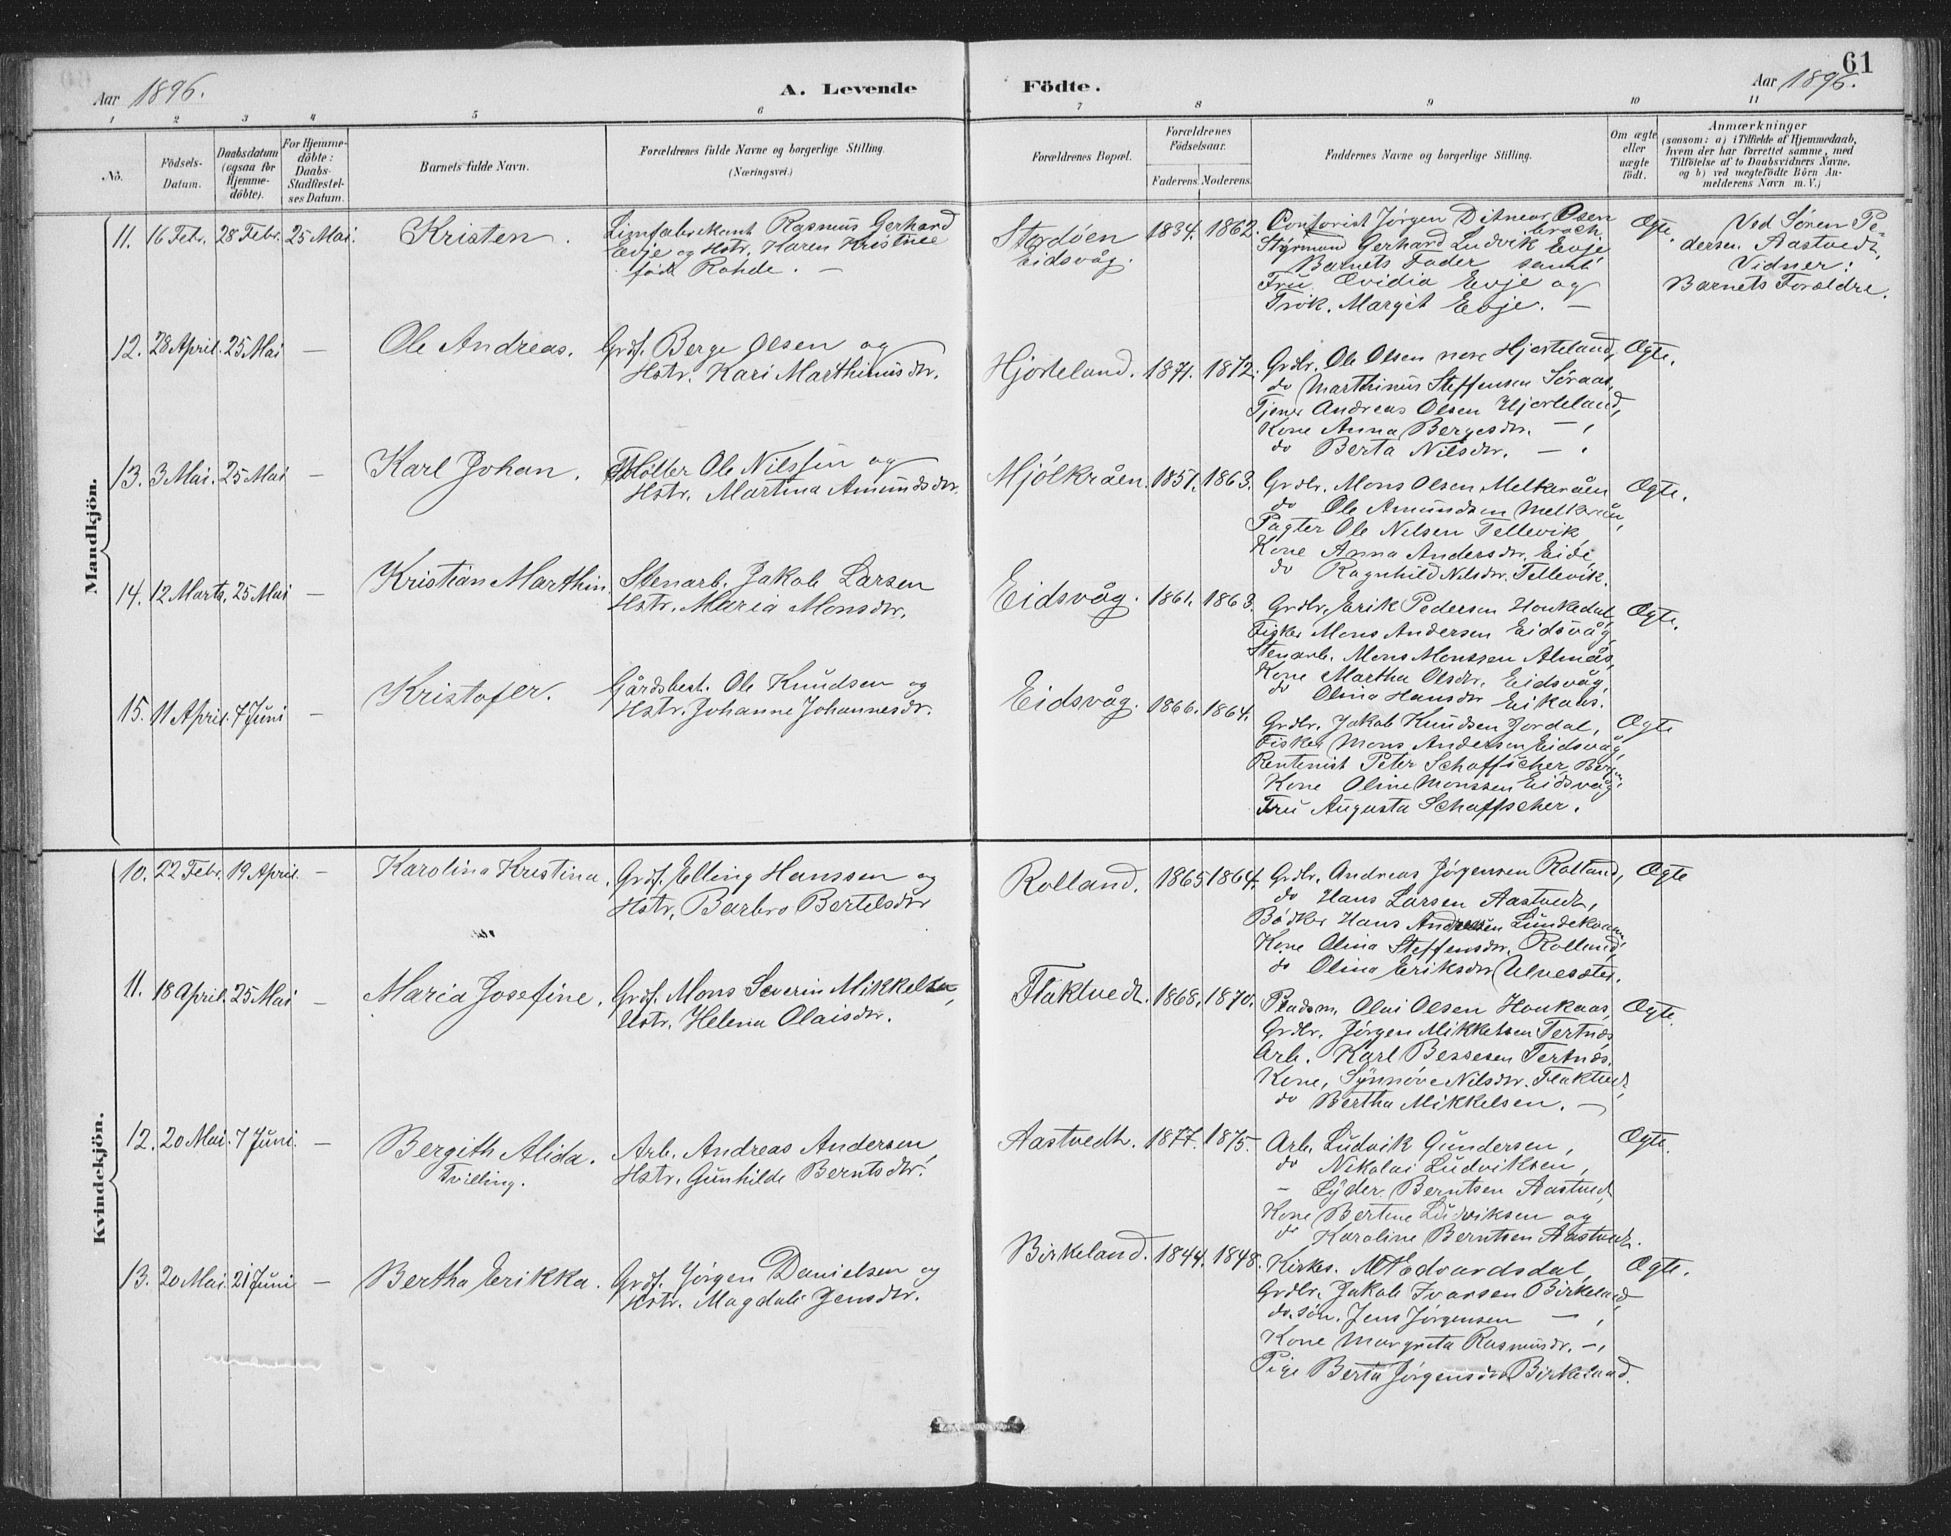 61
Aar 1896.
A. Levende
Födte.
Aar 1896.
1 2 3 4 5 6 7 8 9 10 11
No.
Födsels-Datum.
Daabsdatum (ogsaa for Hjemme-döbte).
For Hjemme-döbte: Daabs-Stadfæstel-ses Datum.
Barnets fulde Navn.
Forældrenes fulde Navne og borgerlige Stilling.
(Næringsvei.)
Forældrenes Bopæl.
Forældrenes Födselsaar.
Faderens. Moderens.
Faddernes Navne og borgerlige Stilling.
Om ægte eller uægte födt.
Anmærkninger
(saasom: a) i Tilfælde af Hjemmedaab,
hvem der har forrettet samme, med
Tilföielse af to Daabsvidners Navne.
og b) ved uægtefödte Börn An-
melderens Navn m. V.)
Mandkjön.
11. 16 Febr. 28 Febr. 25 Mai. Kristen.
Limfabrikant Rasmus Gerhard
Evje og Hstr. Karen Kristine
født Rohde. —
Stordøen
Eidsvåg.
1834. 1862.
Contorist Jørgen Ditmar Osen
broch
Styrmand Gerhard Ludvik Evje
Barnets Fader samt
Fru Ovidia Evje og
Frøk. Margit Evje. —
Øgte.
Ved Søren Pe-
dersen Aastvedt,
Vidner:
Barnets Forældre.
12. 28 April. 25 Mai — Ole Andreas.
Grdf. Berge Olsen og
Hstr. Kari Marthinusdtr.
Hjorteland. 1871. 1872.
Grdbr. Ole Olsen Hjorteland,
do Marthinus Steffensen Søraas,
Tjener Andreas Olsen Hjorteland,
Kone Anna Bergesdtr. — ,
do Berta Nilsdtr. — .
Ægte.
13. 3 Mai. 25 Mai — Karl Johan.
Ole Nilssen og
Hstr. Martina Amundsdtr.
Mjølkråen. 1851. 1863.
Grdbr. Mons Olsen Melkråen
do Ole Amundsen Melkråen,
Pagter Ole Nilsen Tellevik,
Kone Anna Andersdtr. Eide,
do Ragnhild Nilsdtr. Tellevik.
Ægte.
14. 12 Marts. 25 Mai — Kristian Marthin.
Stenarb. Jakob Larsen
Hstr. Maria Monsdtr.
Eidsvåg. 1861. 1863.
Grdbr. Erik Pedersen Haukedal,
Fisker Mons Andersen Eidsvåg,
Stenarb. Mons Monssen Almås,
Kone Martha Olsdtr. Eidsvåg,
do Olina Hansdtr Eikaas.
Ægte.
15. 11 April. 7 Juni — Kristofer.
Gårdsbest. Ole Knudsen og
Hstr. Johanne Johannesdtr.
Eidsvåg. 1866. 1864.
Grdbr. Jakob Knudsen Jordal,
Fisker Mons Andersen Eidsvåg,
Rentenist Peter Schaffscher, Bergen,
Kone Oline Monssen Eidsvåg,
Fru Augusta Schaffscher.
Ægte
Kvindekjön.
10. 22 Febr. 19 April. — Karolina Kristina.
Grdf. Elling Hanssen og
Hstr. Barbro Bertelsdtr
Rolland. 1865 1864.
Grdbr. Andreas Jørgensen Rolland,
do Hans Larsen Aastvedt,
Bødker Hans Andersen Lundekvam,
Kone Olina Steffensdtr. Rolland,
do Olina Eriksdtr Ulvesæter.
Ægte
11. 18 April. 25 Mai — Maria Josefine.
Grdf. Mons Severin Mikkelsen,
Hstr. Helena Olaisdtr.
Flaktvedt. 1868. 1870.
Pladsm. Olai Olsen Haukaas,
Grdbr. Jørgen Mikkelsen Tertnæs,
Arb. Karl Bessesen Tertnæs,
Kone, Synnøve Nilsdtr. Flaktvedt,
do Bertha Mikkelsen. —
Ægte.
12. 20 Mai. 7 Juni. — Bergith Alida.
Tvilling.
Arb. Andreas Andersen,
Hstr. Gunhilde Berntsdtr.
Aastvedt. 1877. 1875.
Arb. Ludvik Gundersen,
do Nikolai Ludviksen,
- Lyder Berntsen Aastvedt
Kone Bertine Ludviksen og
do Karoline Berntsen Aastvedt.
Ægte.
13. 20 Mai. 21 Juni — Bertha Erikka.
Grdf. Jørgen Danielsen og
Hstr. Magdali Jensdtr.
Birkeland. 1844. 1848.
Kirkes. M Edvardsdal,
Grdbr. Jakob Ivarsen Birkeland
do. søn. Jens Jørgensen — ,
Kone Margreta Rasmusdtr. — ,
Pige Berta Jørgensdtr Birkeland.
Ægte.